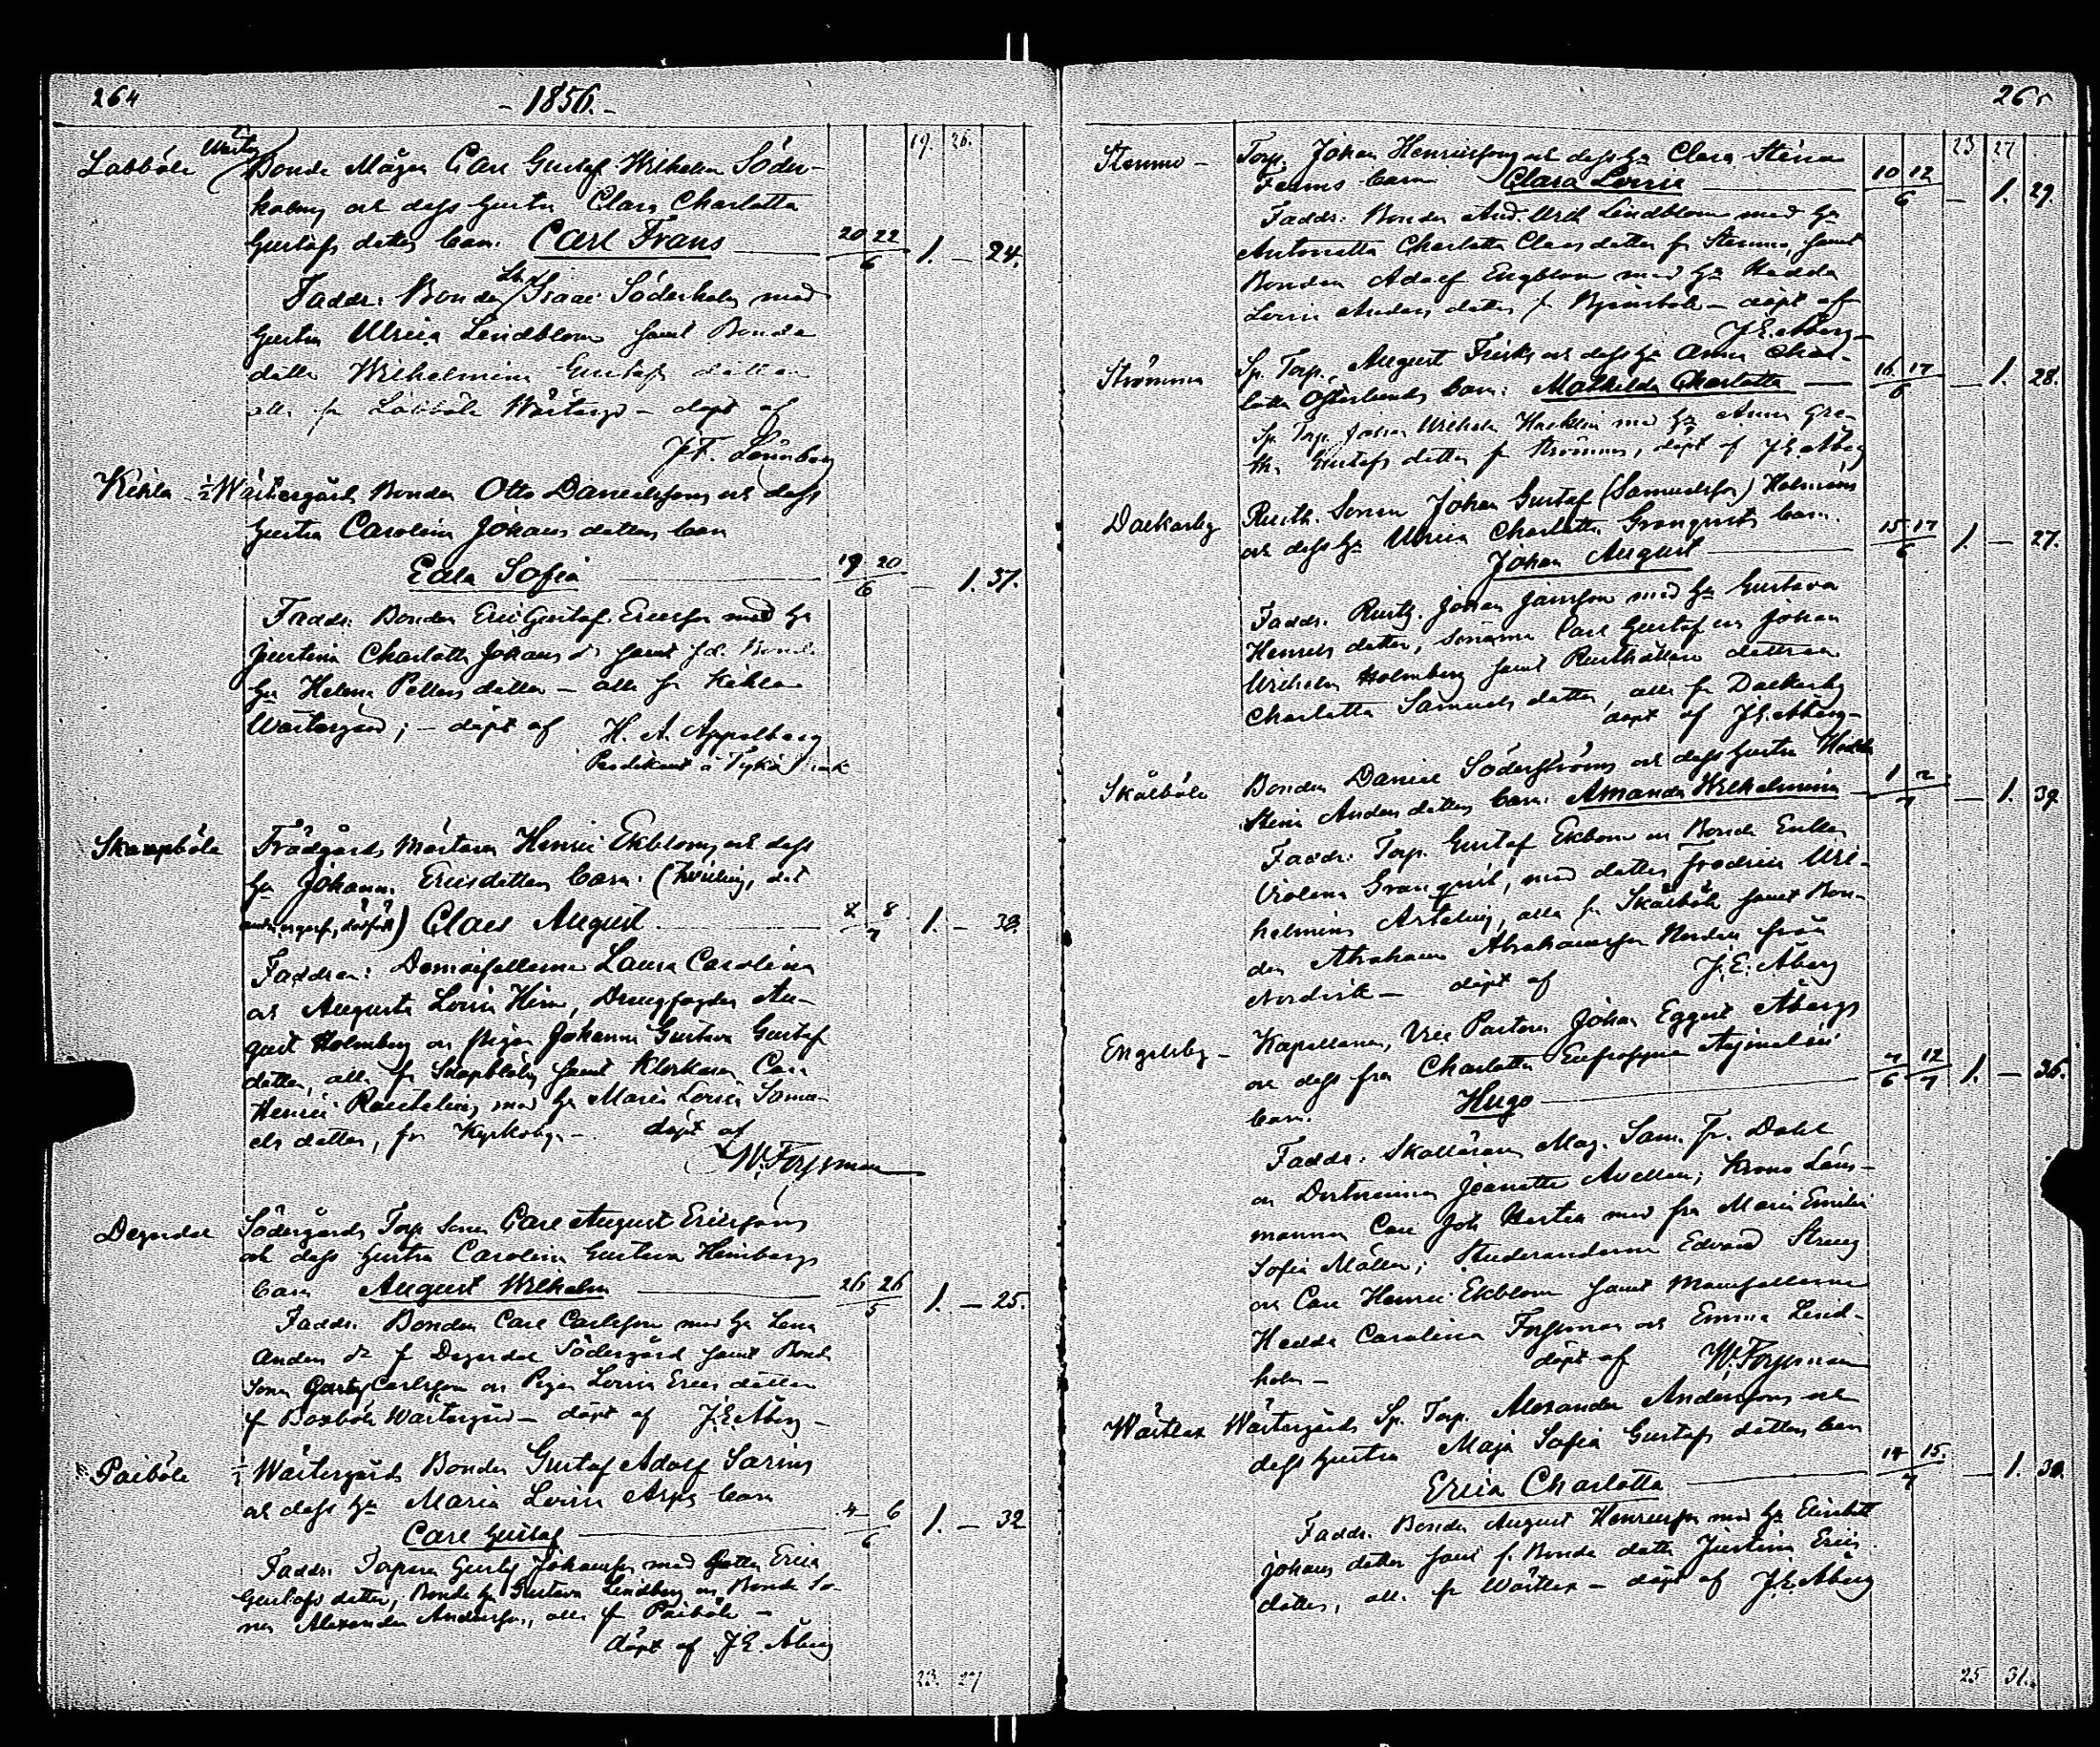 264
- 1856. -
19. 26.
Labböle Wäster Bonde Mågen Carl Gustaf Wilhelm Söder-
holms och dess hustru Clara Charlotta
Gustafs dotters barn. Carl Frans 20 22 / 6 1. — 24.
Faddr: Bonden Isaac Söderholm med
hustru Ulrica Lindblom samt Bonde
dottr Wilhelmina Gustafs dotter
alla fr Labböle Wästergd — döpt af
J.F. Lönnberg
Kihla ½ Wästergårds Bonden Otto Danielssons och dess
hustru Carolina Johans dotters barn
Edla Sofia 19 20 / 6 — 1. 37.
Faddr. Bonden Eric Gustaf Ericsson med hu
Justina Charlotta Johans dr samt Bond
hu Helena Petters dotter — alla fr Kihla
Wästergård; — döpt af H. A. Appelberg
Predikant å Tykö bruk
Skarpböle Trädgårds Mästaren Henric Ekbloms och dess
hu Johanna Ericsdotters barn. (tvilling, det
andra, dödfödt) Claes August 8 / 7 1. — 38.
Faddrar: Demoisellerna Laura Carolina
och Augusta Lovisa Hirn, Drengfogden Au-
gust Holmberg och pigan Johanna Gustava Gustaf
dotter, alla fr Skarpböle samt Klockaren Carl
Henric Rautelius med hu Maria Lovisa Samu-
els dotter, fr Kyrkoby — döpt af
W. Forssman
Degerdal Södergårds Torp. Sonen Carl August Ericssons
och dess hustru Carolina Gustava Heinbergs
barn August Wilhelm 26 26 / 5 1. — 25.
Faddr. Bonden Carl Carlsson med hu Lena
Anders dr fr Degerdal Södergård samt Bonde
Sonen Gustaf Carlsson och Pigan Lovisa Erics dotter
fr Boxböle Wästergård — döpt af J.E. Åberg —
Paiböle ½ Wästergårds Bonden Gustaf Adolf Sarins
och dess hu Maria Lovisa Arps barn
Carl Gustaf 4 6 / 6 1. — 32
Faddr. Torparen Gustaf Johansson med hustru Erica
Gustafs dotter, Bonde hu Gustava Lindberg och Bonde So-
nen Alexander Andersson, alla fr Paiböle —
döpt af J.E. Åberg
23. 27
265
23 27
Stenmo — Torp. Johan Henricssons och dess hu Clara Stina
barn Clara Lovisa 10 12 / 6 — 1. 29.
Faddr: Bonden And. Ulric Lindblom med hu
Antonetta Charlotta Claes dotter fr Stenmo, samt
Bonden Adolf Engblom med hu Hedda
Lovisa Anders dotter fr Bjensböle — döpt af
J.E. Åberg —
Strömma Sp. Torp. August Frisks och dess hu Anna Char-
lotta Österlunds barn: Mathilda Charlotta 16 17 / 6 — 1. 28.
Sp. Torp. Johan Wilhelm Hacklin med hu Anna Gre-
tha Gustafs dotter fr Strömma, döpt af J.E. Åberg
Dalkarby Rusth. Sonen Johan Gustaf (Samuelsson) Holmens
och dess hu Ulrica Charlotta Granqvists barn.
Johan August 15 17 / 6 1. — 27.
Faddr. Rusth. Johan Jansson med hu Gustava
Henrics dotter, Sönerna Carl Gustaf och Johan
Wilhelm Holmberg samt Rusthållare dottren
Charlotta Samuels dotter, alla fr Dalkarby
döpt af J.E. Åberg —
Skålböle Bonden Daniel Söderströms och dess hustru Hedda
Stina Anders dotters barn. Amanda Wilhelmina 1 2 / 7 — 1. 39.
Faddr: Torp. Gustaf Ekbom och Bonde Enkan
Violena Granqvist, med dotter Fredrica Wil-
helmina Artelius, alla fr Skålböle samt Bon-
den Abraham Abrahamsson Norden från
Nordvik — döpt af J.E. Åberg
Engelsby — Kapellanen, Vice Pastorn Johan Eggert Åbergs
och dess fru Charlotta Eufrosyne Aejmelæi
barn. Hugo 4 / 6 12 / 7 1. — 36.
Faddr: Skolläraren Mag. Sam. Fr. Dahl
och Doctorinnan Jeanette Avellan; Krono Läns-
mannen Carl Joh. Hertz med fru Maria Emilia
Sofia Möller; Studeranderne Edvard Streng
och Carl Henric Ekblom samt Mamsellerna
Hedda Carolina Forssman och Emma Lind-
holm — döpt af W. Forssman
Wästlax Wästergårds Sp. Torp. Alexander Anderssons och
dess hustru Maja Sofia Gustafs dotters barn
Erica Charlotta 14 15 / 7 — 1. 30.
Faddr. Bonden August Henricsson med hu Elisabet
Johans dotter samt f. Bonde dottr Justina Erics
dotter, alla fr Wästlax — döpt af J.E. Åberg
25 31.